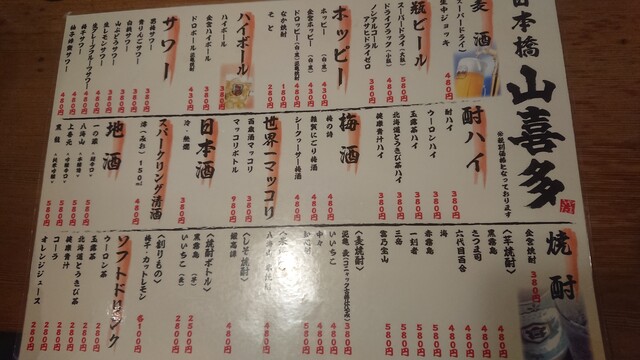 日本橋
山喜多
※税別価格となっております
麦酒
(スーパードライ)
生中ジョッキ 480円
瓶ビール
スーパードライ(大瓶) 580円
ドライブラック(小瓶) 480円
ノンアルコール
アサヒドライゼロ 380円
ホッピー
ホッピー(白・黒) 430円
金宮ホッピー(白・黒) 430円
ドロッピー(金宮焼酎) 480円
なか焼酎 180円
そと 280円
ハイボール
ハイボール 380円
金宮ハイボール 380円
ドロハイボール 430円
サワー
レモンサワー
青りんごサワー 380円
白桃サワー 380円
山ぶどうサワー 380円
生レモンサワー 480円
生グレープフルーツサワー 480円
梅干サワー 480円
480円
酎ハイ
酎ハイ 380円
ウーロンハイ 380円
玉露茶ハイ 380円
北海道とうきび茶ハイ 380円
健康青汁ハイ 380円
梅酒
梅の詩 380円
雑賀にごり梅酒 480円
シークヮーサー梅酒 480円
世界一マッコリ
百歳酒マッコリ 380円
マッコリボトル 980円
日本酒
冷・熱燗 380円
スパークリング清酒
澪(みお) 150ml 480円
地酒
一の蔵 580円
八海山 580円
上善元 580円
黒龍 580円
焼酎
金宮焼酎 380円
〈芋焼酎〉
黒霧島 480円
さつま司 480円
六代目百合 480円
海 480円
赤霧島 580円
一刻者 580円
三岳 580円
富乃宝山 580円
〈麦焼酎〉
いいちこ 480円
中々 480円
〈しそ焼酎〉
鍛高譚 480円
〈焼酎ボトル〉
黒霧島(芋) 2500円
いいちこ(麦) 2800円
〈割りもの〉
梅干・カットレモン 各100円
ソフトドリンク
ウーロン茶 280円
玉露茶 280円
北海道とうきび茶 280円
健康青汁 280円
コーラ 280円
オレンジジュース 280円